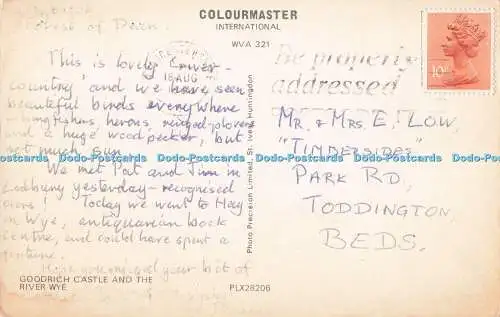 COLOURMASTER
INTERNATIONAL
WVA 321
Forest of Dean.
This is lovely
country and we have seen
beautiful birds everywhere
kingfishers, herons, ringed-plovers
and a huge woodpecker, but
not much sun.
We met Pat and Jim in
Ledbury yesterday - recognised
ours! Today we went to Hay
on Wye, antiquarian book
centre, and could have spent a
fortune.
Hope you enjoyed your bit of
GOODRICH CASTLE AND THE
RIVER WYE
PLX28206
Photo Precision Limited, St. Ives, Huntingdon
18 AUG
Be properly
addressed
10P
MR. & MRS E. LOW,
"TINDERSIDE"
PARK RD,
TODDINGTON
BEDS.
Dodo-Postcards Dodo-Postcards Dodo-Postcards Dodo-Postcards Dodo-Postcards Dodo-Postcards